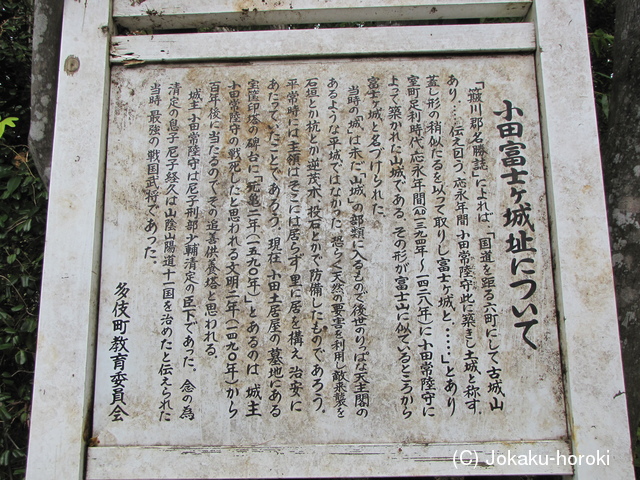 小田富士ヶ城址について
「簸川郡名勝誌」によれば 「国道を距る六町にして古城山
あり、……伝え曰う、応永年間 小田常陸守此に築きし土城と称す。
蓋し形の稍似たるを以って取りし富士ヶ城と、……」とあり
室町足利時代 応永年間(AD一三九四年〜一四二八年)に小田常陸守に
よって築かれた山城である。その形が富士山に似ているところから
富士ヶ城と名づけられた。
当時の「城」は未だ「山城」の部類に入るもので後世のりっぱな天主閣の
あるような平城ではなかった。恐らく天然の要害を利用し敵来襲を
石垣とか杭とか逆茂木、投石とかで防備したものであろう。
平常時には主領はそこには居らず、里に居を構え 治安に
あたっていたことであろう。現在 小田土居屋の墓地にある
宝篋印塔の碑台に「元亀二年(一五九〇年)」とあるのは 城主
小田常陸守の戦死したと思われる文明二年(一四九〇年)から
百年後に当たるのでその追善供養塔と思われる。
城主 小田常陸守は尼子刑部少輔清定の臣下であった。念の為
清定の息子 尼子経久は山陰山陽道十一国を治めたと伝えられた
当時 最強の戦国武将であった。
多伎町教育委員会
(C) Jokaku-horoki